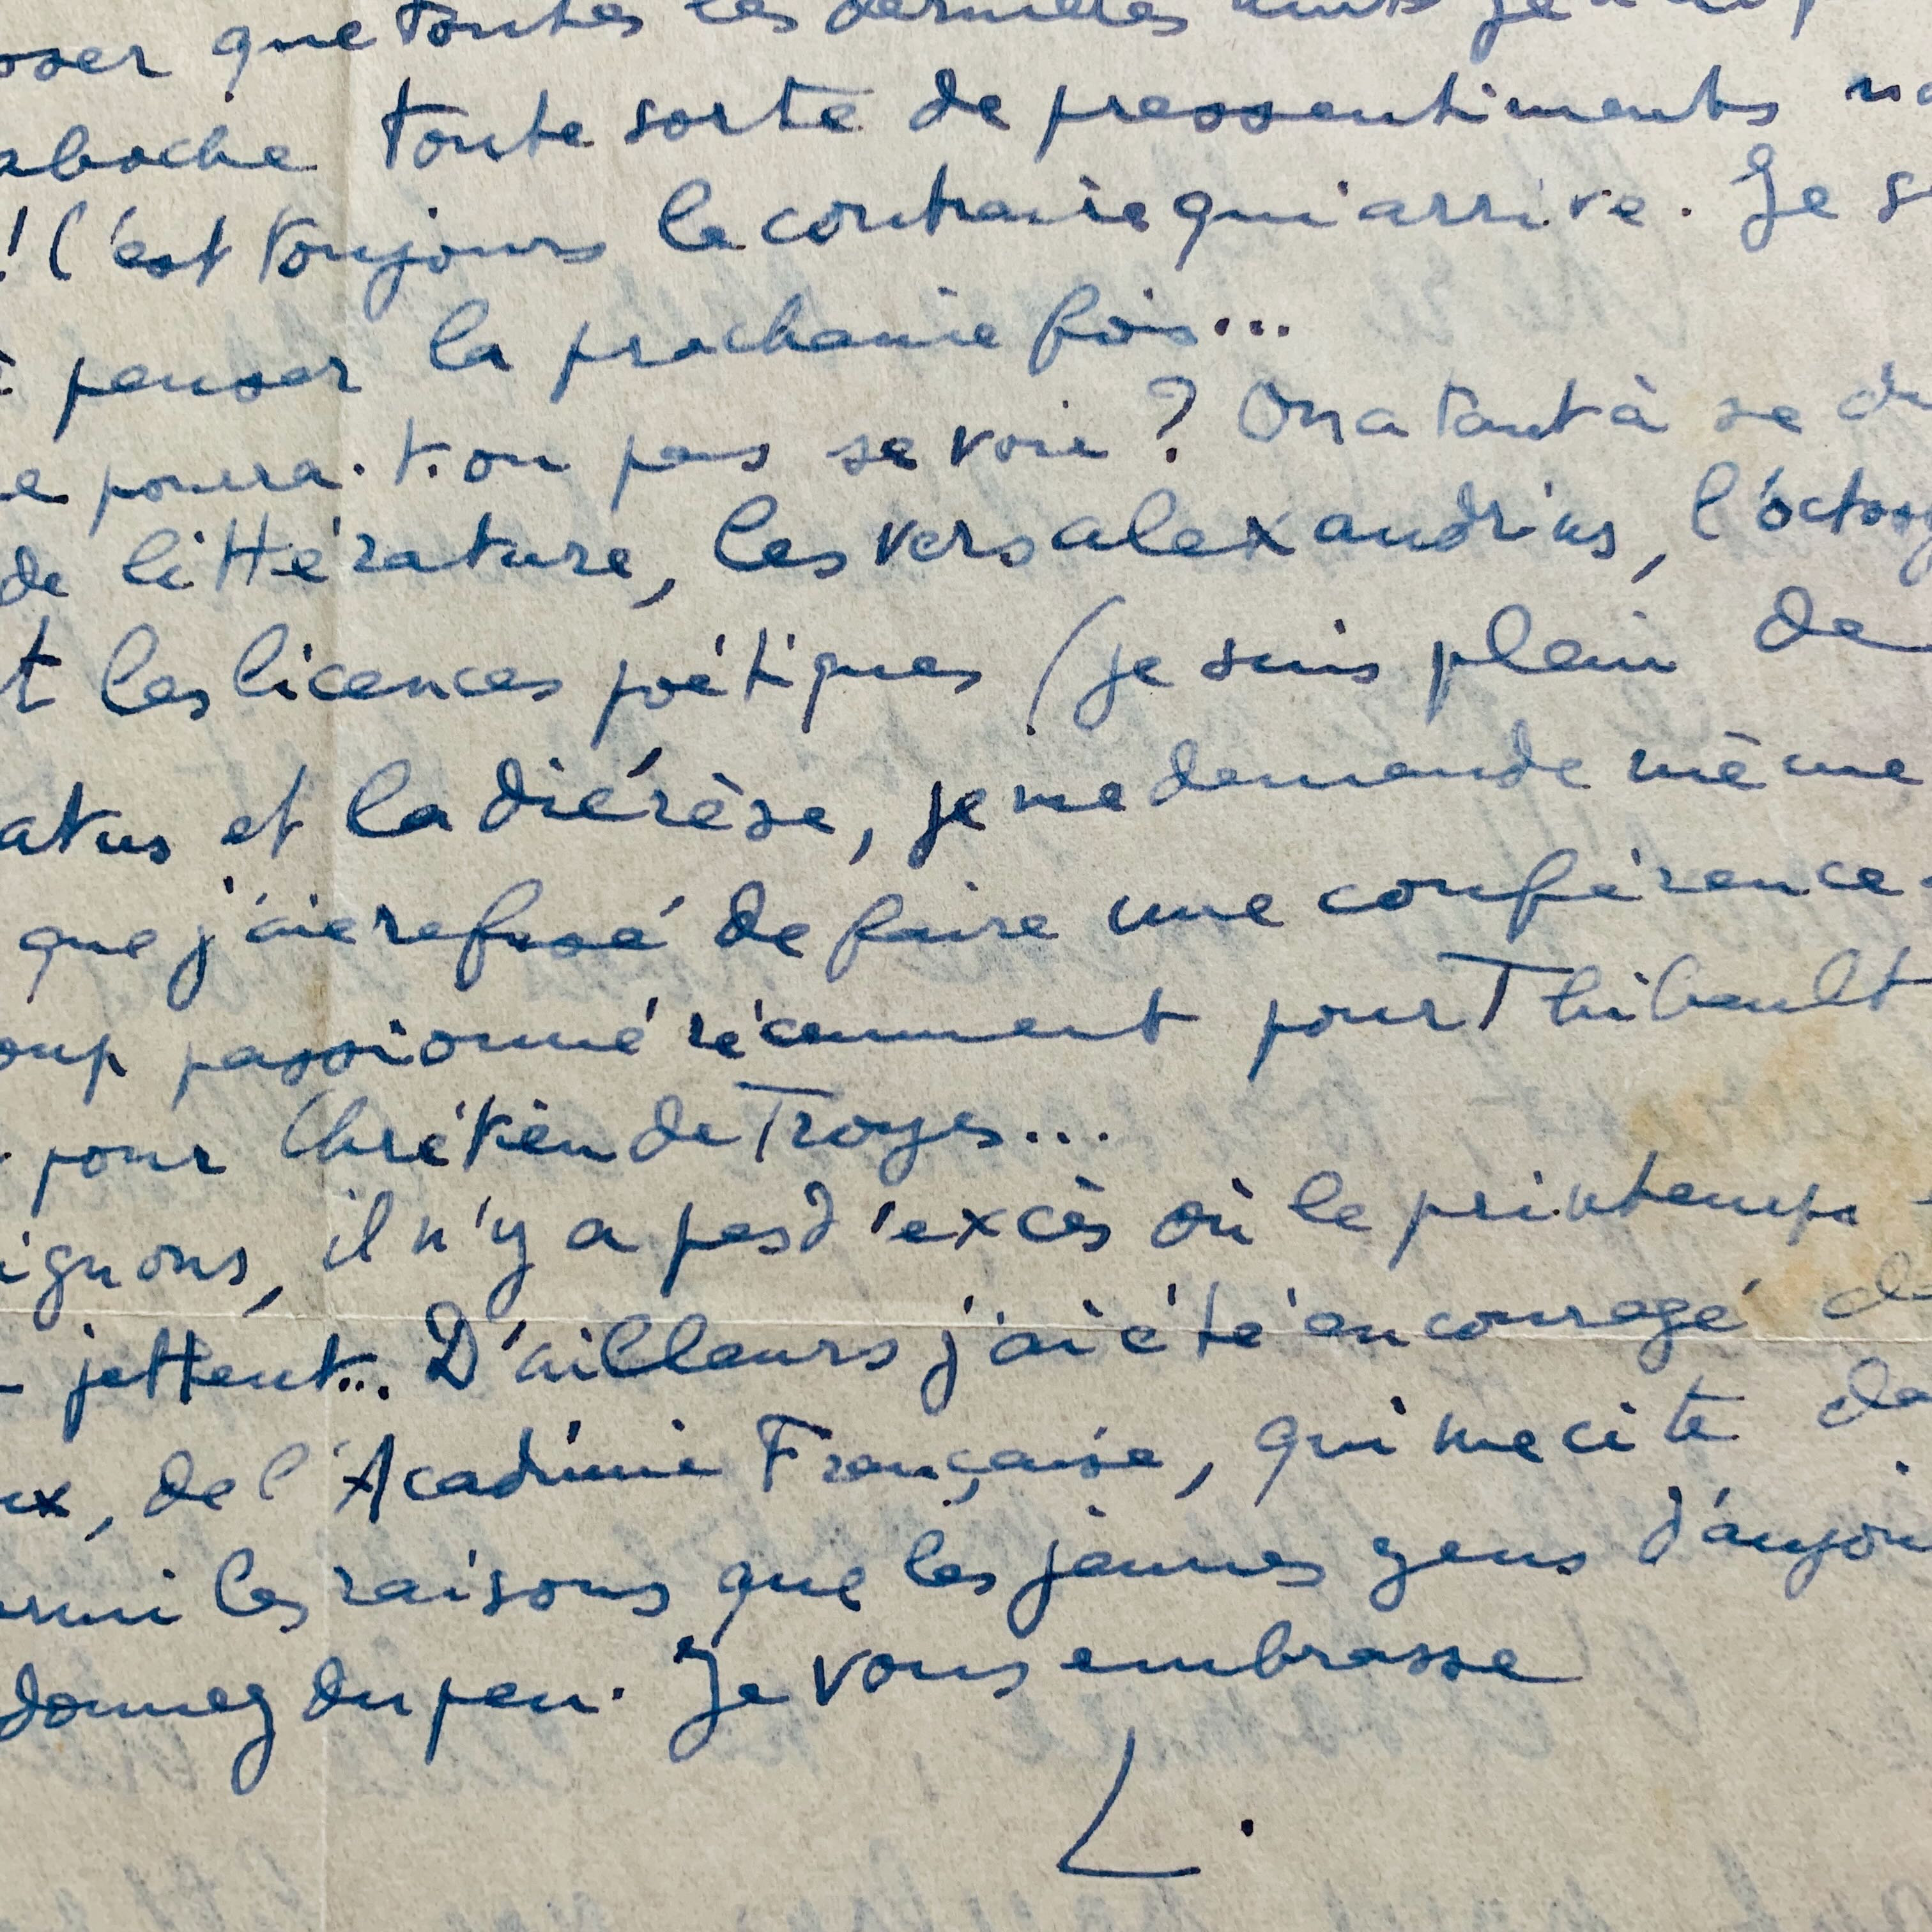 oser que toutes les dernières nuits je
aboche toute sorte de pressentiments
! C'est toujours le contraire qui arrive. Je s
à penser la prochaine fois...
e pourra-t-on pas se voir ? On a tant à se di
de littérature, les vers alexandrins, l'octosy
t les licences poétiques (je suis plein de
atus et la diérèse, je me demande même
que j'aie refusé de faire une conférence
oup passionné récemment pour Thibault
pour Chrétien de Troyes...
ignons, il n'y a pas d'excès où le printemps
- jettent... D'ailleurs j'ai été encouragé
ux, de l'Académie Française, qui me cite da
armi les raisons que les jeunes gens d'aujou
donnez du peu. Je vous embrasse
L.